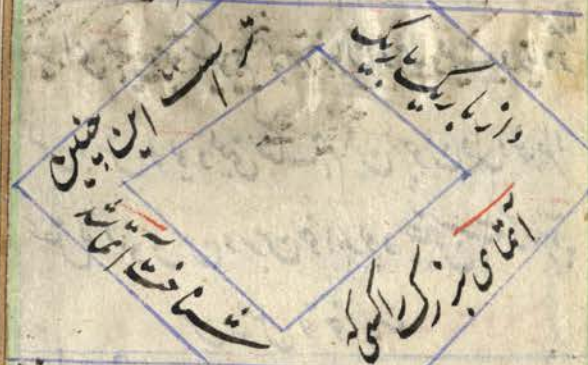 و از باریک باریک
تر است این چنین
آتمای بزرگ را کسی که
شناخت آتما شد